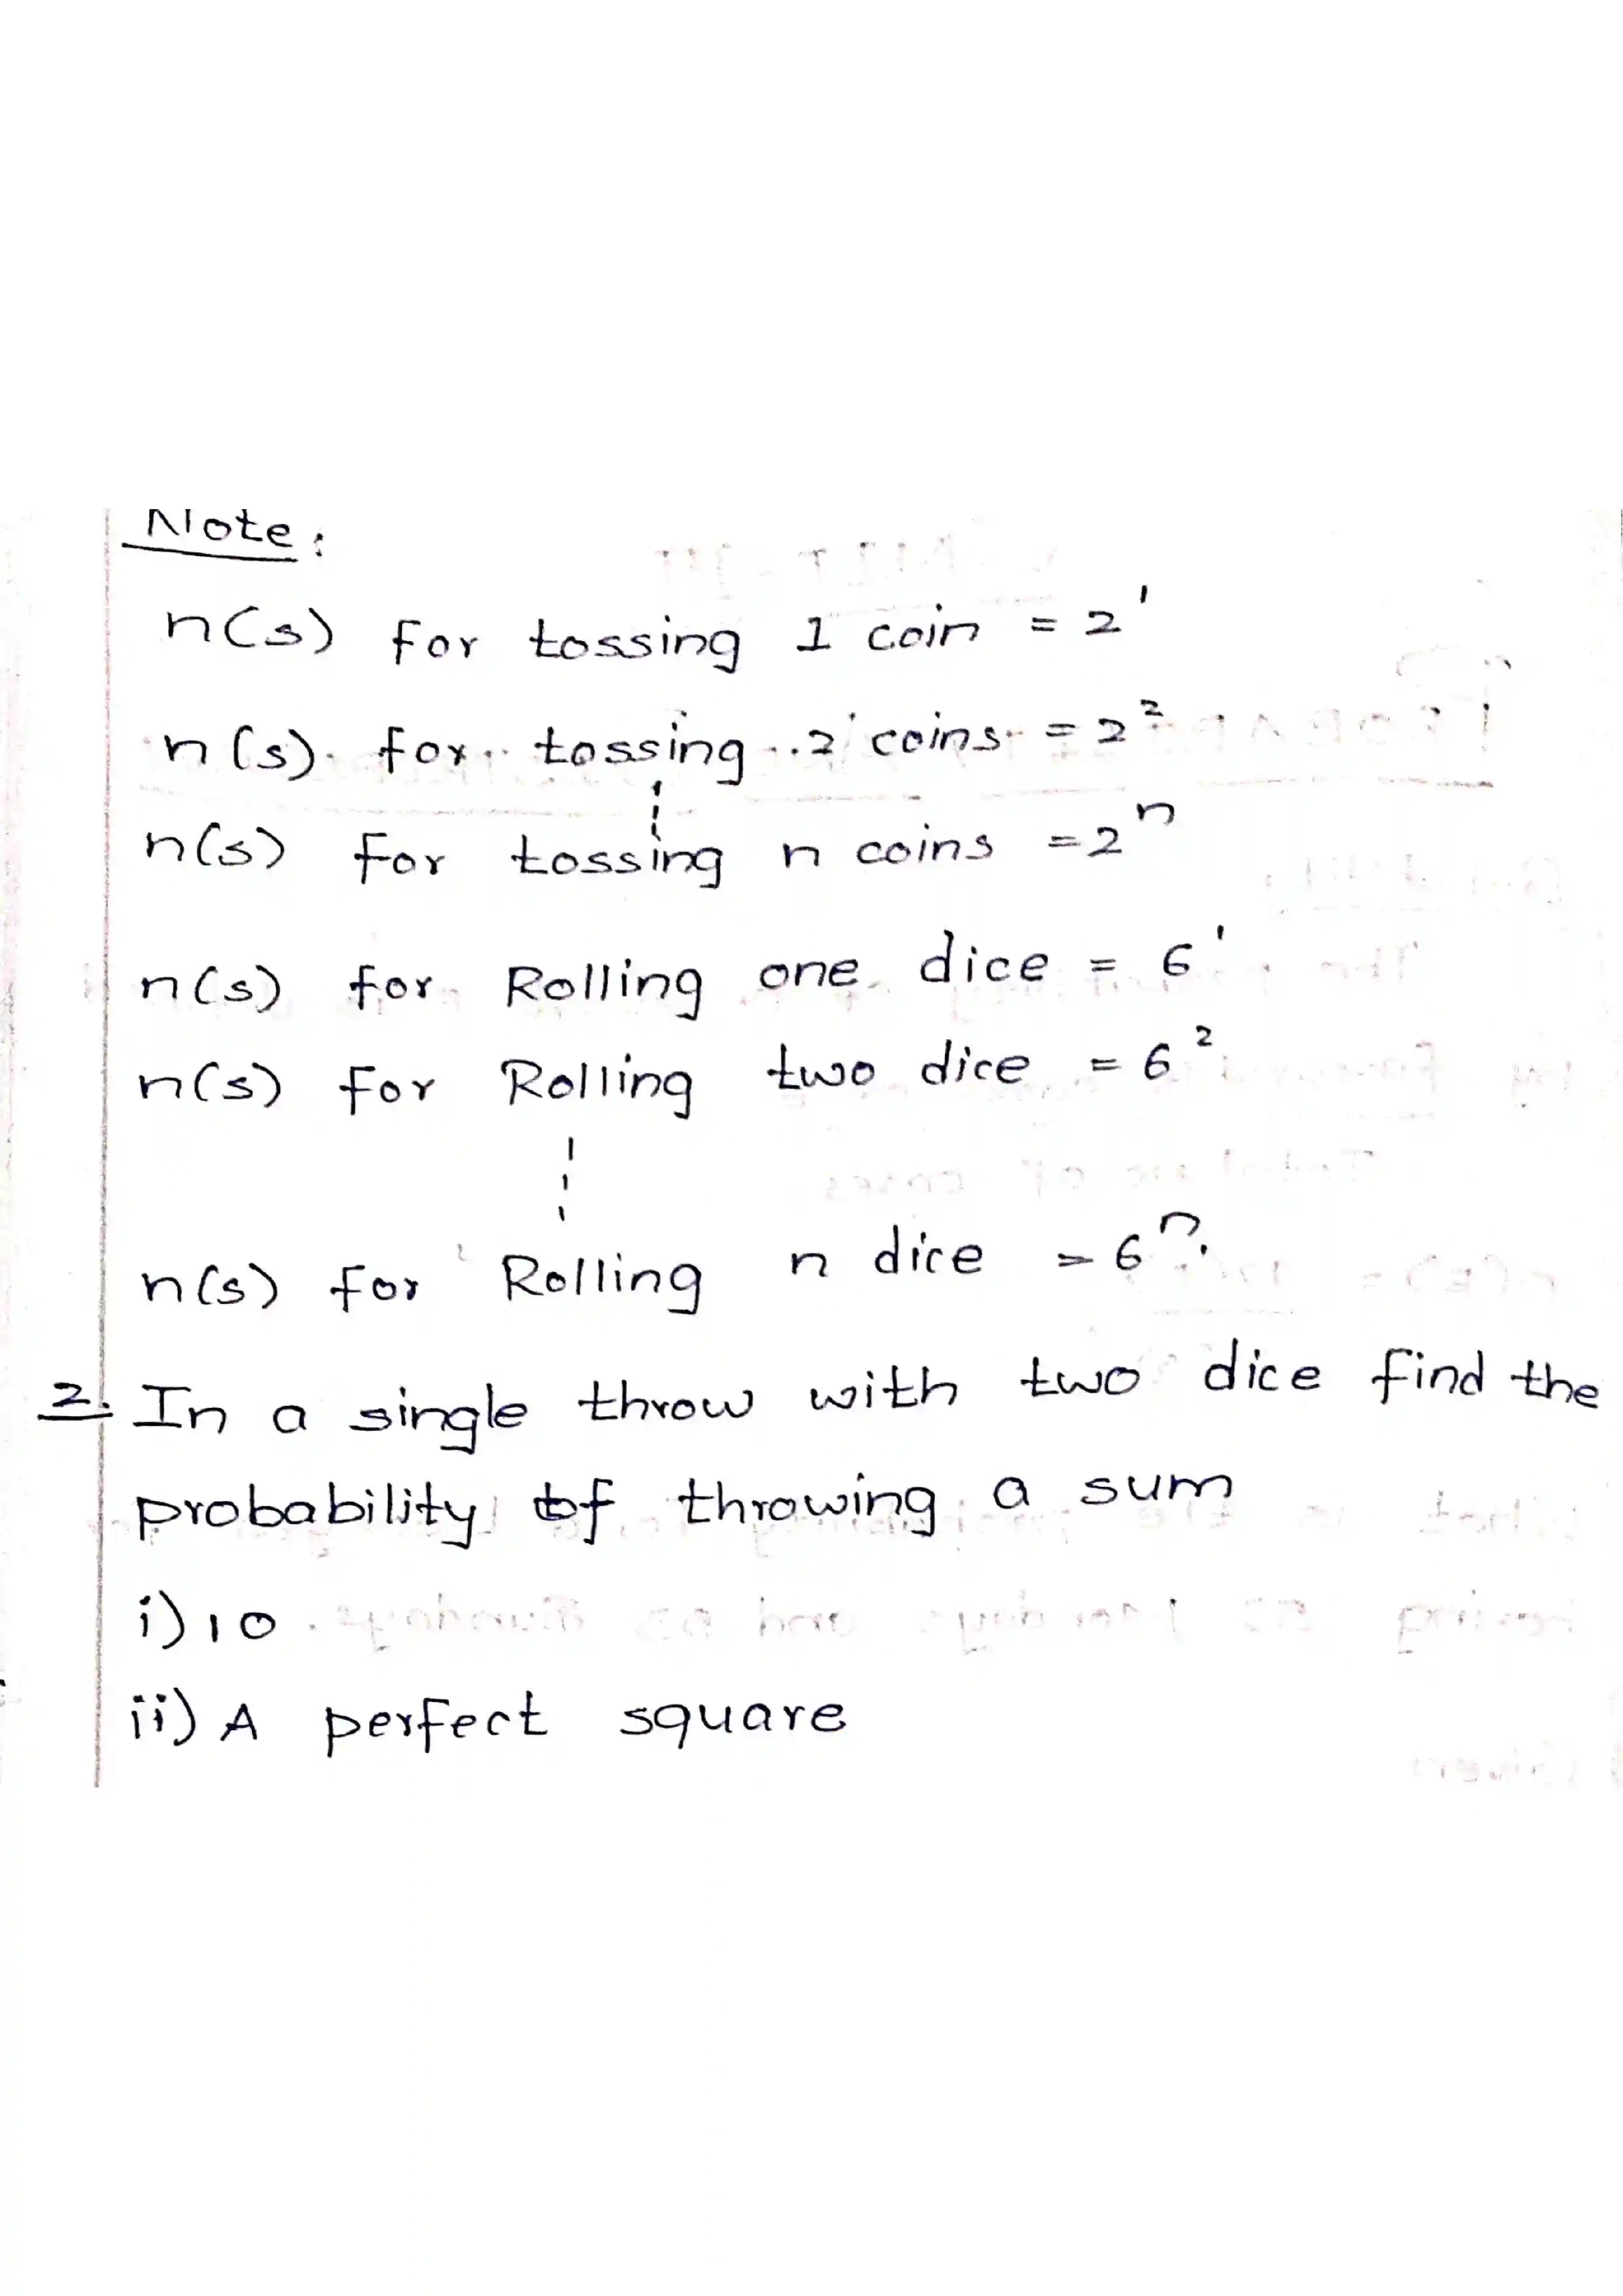 Note:
n(s) for tossing 1 coin = 2¹
n(s) for tossing 2 coins = 2²
n(s) for tossing n coins = 2ⁿ
n(s) for Rolling one dice = 6¹
n(s) for Rolling two dice = 6²
n(s) for Rolling n dice = 6ⁿ.
2. In a single throw with two dice find the
probability of throwing a sum
i) 10
ii) A perfect square